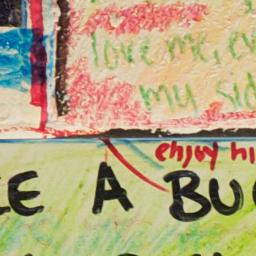 love me, ev
my sid
enjoy hi
KE A BUG